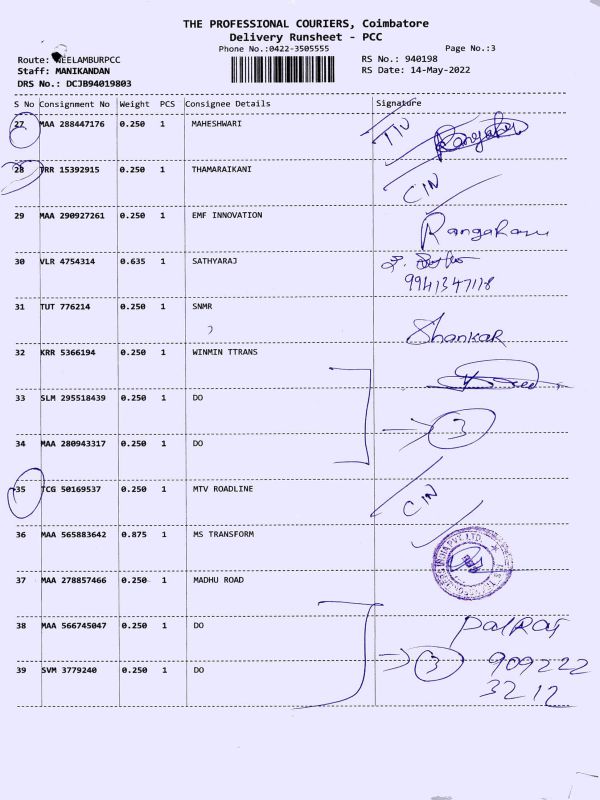 THE PROFESSIONAL COURIERS, Coimbatore
Delivery Runsheet - PCC
Phone No.:0422-3505555
Page No.:3
Route: NEELAMBURPCC
RS No.: 940198
Staff: MANIKANDAN
RS Date: 14-May-2022
DRS No.: DCJB94019803
S No Consignment No Weight PCS Consignee Details Signature
27 MAA 288447176 0.250 1 MAHESHWARI
28 TRR 15392915 0.250 1 THAMARAIKANI CIN
29 MAA 290927261 0.250 1 EMF INNOVATION Rangaraju
30 VLR 4754314 0.635 1 SATHYARAJ
9941347118
31 TUT 776214 0.250 1 SNMR Shankar
32 KRR 5366194 0.250 1 WINMIN TTRANS
33 SLM 295518439 0.250 1 DO
3
34 MAA 280943317 0.250 1 DO
35 TCG 50169537 0.250 1 MTV ROADLINE CIN
36 MAA 565883642 0.875 1 MS TRANSFORM
37 MAA 278857466 0.250 1 MADHU ROAD
38 MAA 566745047 0.250 1 DO PalRaj
39 SVM 3779240 0.250 1 DO 3 909222
3212